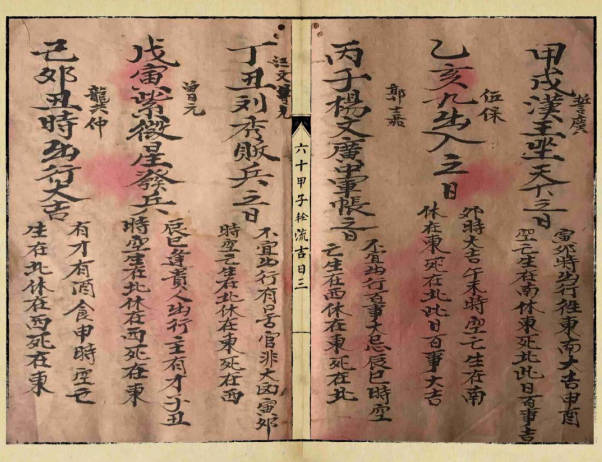 甲戌漢王坐天下之日
寅卯時出行往東南大吉申酉
空亡生在南休東死北此日百事吉
伍保
乙亥九出入之日
卯時大吉午未時空亡生在南
休在東死在北此日百事大吉
郭士嘉
丙子楊文廣中軍帳之日
不宜出行百事大忌辰巳時空
亡生在西休在東死在北
六十甲子輪流吉日三
汪文
丁丑刘秀敗兵之日
不宜出行有口舌官非大凶寅卯
時空亡生在北休在東死在西
戊寅紫微星發兵
辰巳逢貴人出行主有才子丑
時空生在北休在西死在東
己卯丑時出行大吉
有才有酒食申時空亡
生在北休在西死在東